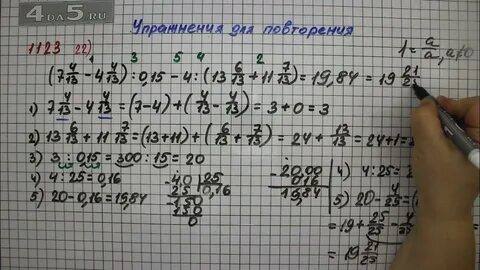 4 ДА 5. RU
Упражнения для повторения
1123 22)
1 = a/a, a≠0
1 3 5 4 2
(7 4/13 - 4 4/13) : 0,15 - 4 : (13 6/13 + 11 7/13) = 19,84 = 19 21/25
1) 7 4/13 - 4 4/13 = (7-4) + (4/13 - 4/13) = 3 + 0 = 3
2) 13 6/13 + 11 7/13 = (13+11) + (6/13 + 7/13) = 24 + 13/13 = 24+1=
3) 3 : 0,15 = 300 : 15 = 20
4) 4 : 25 = 0,16
5) 20 - 0,16 = 19,84
40 25
25 0,16
150
150
0
20,00
0,16
19,84
4) 4:25 =
5) 20 - 4/25 = (
= 19 + 25/25 - 4/25
= 19 21/25